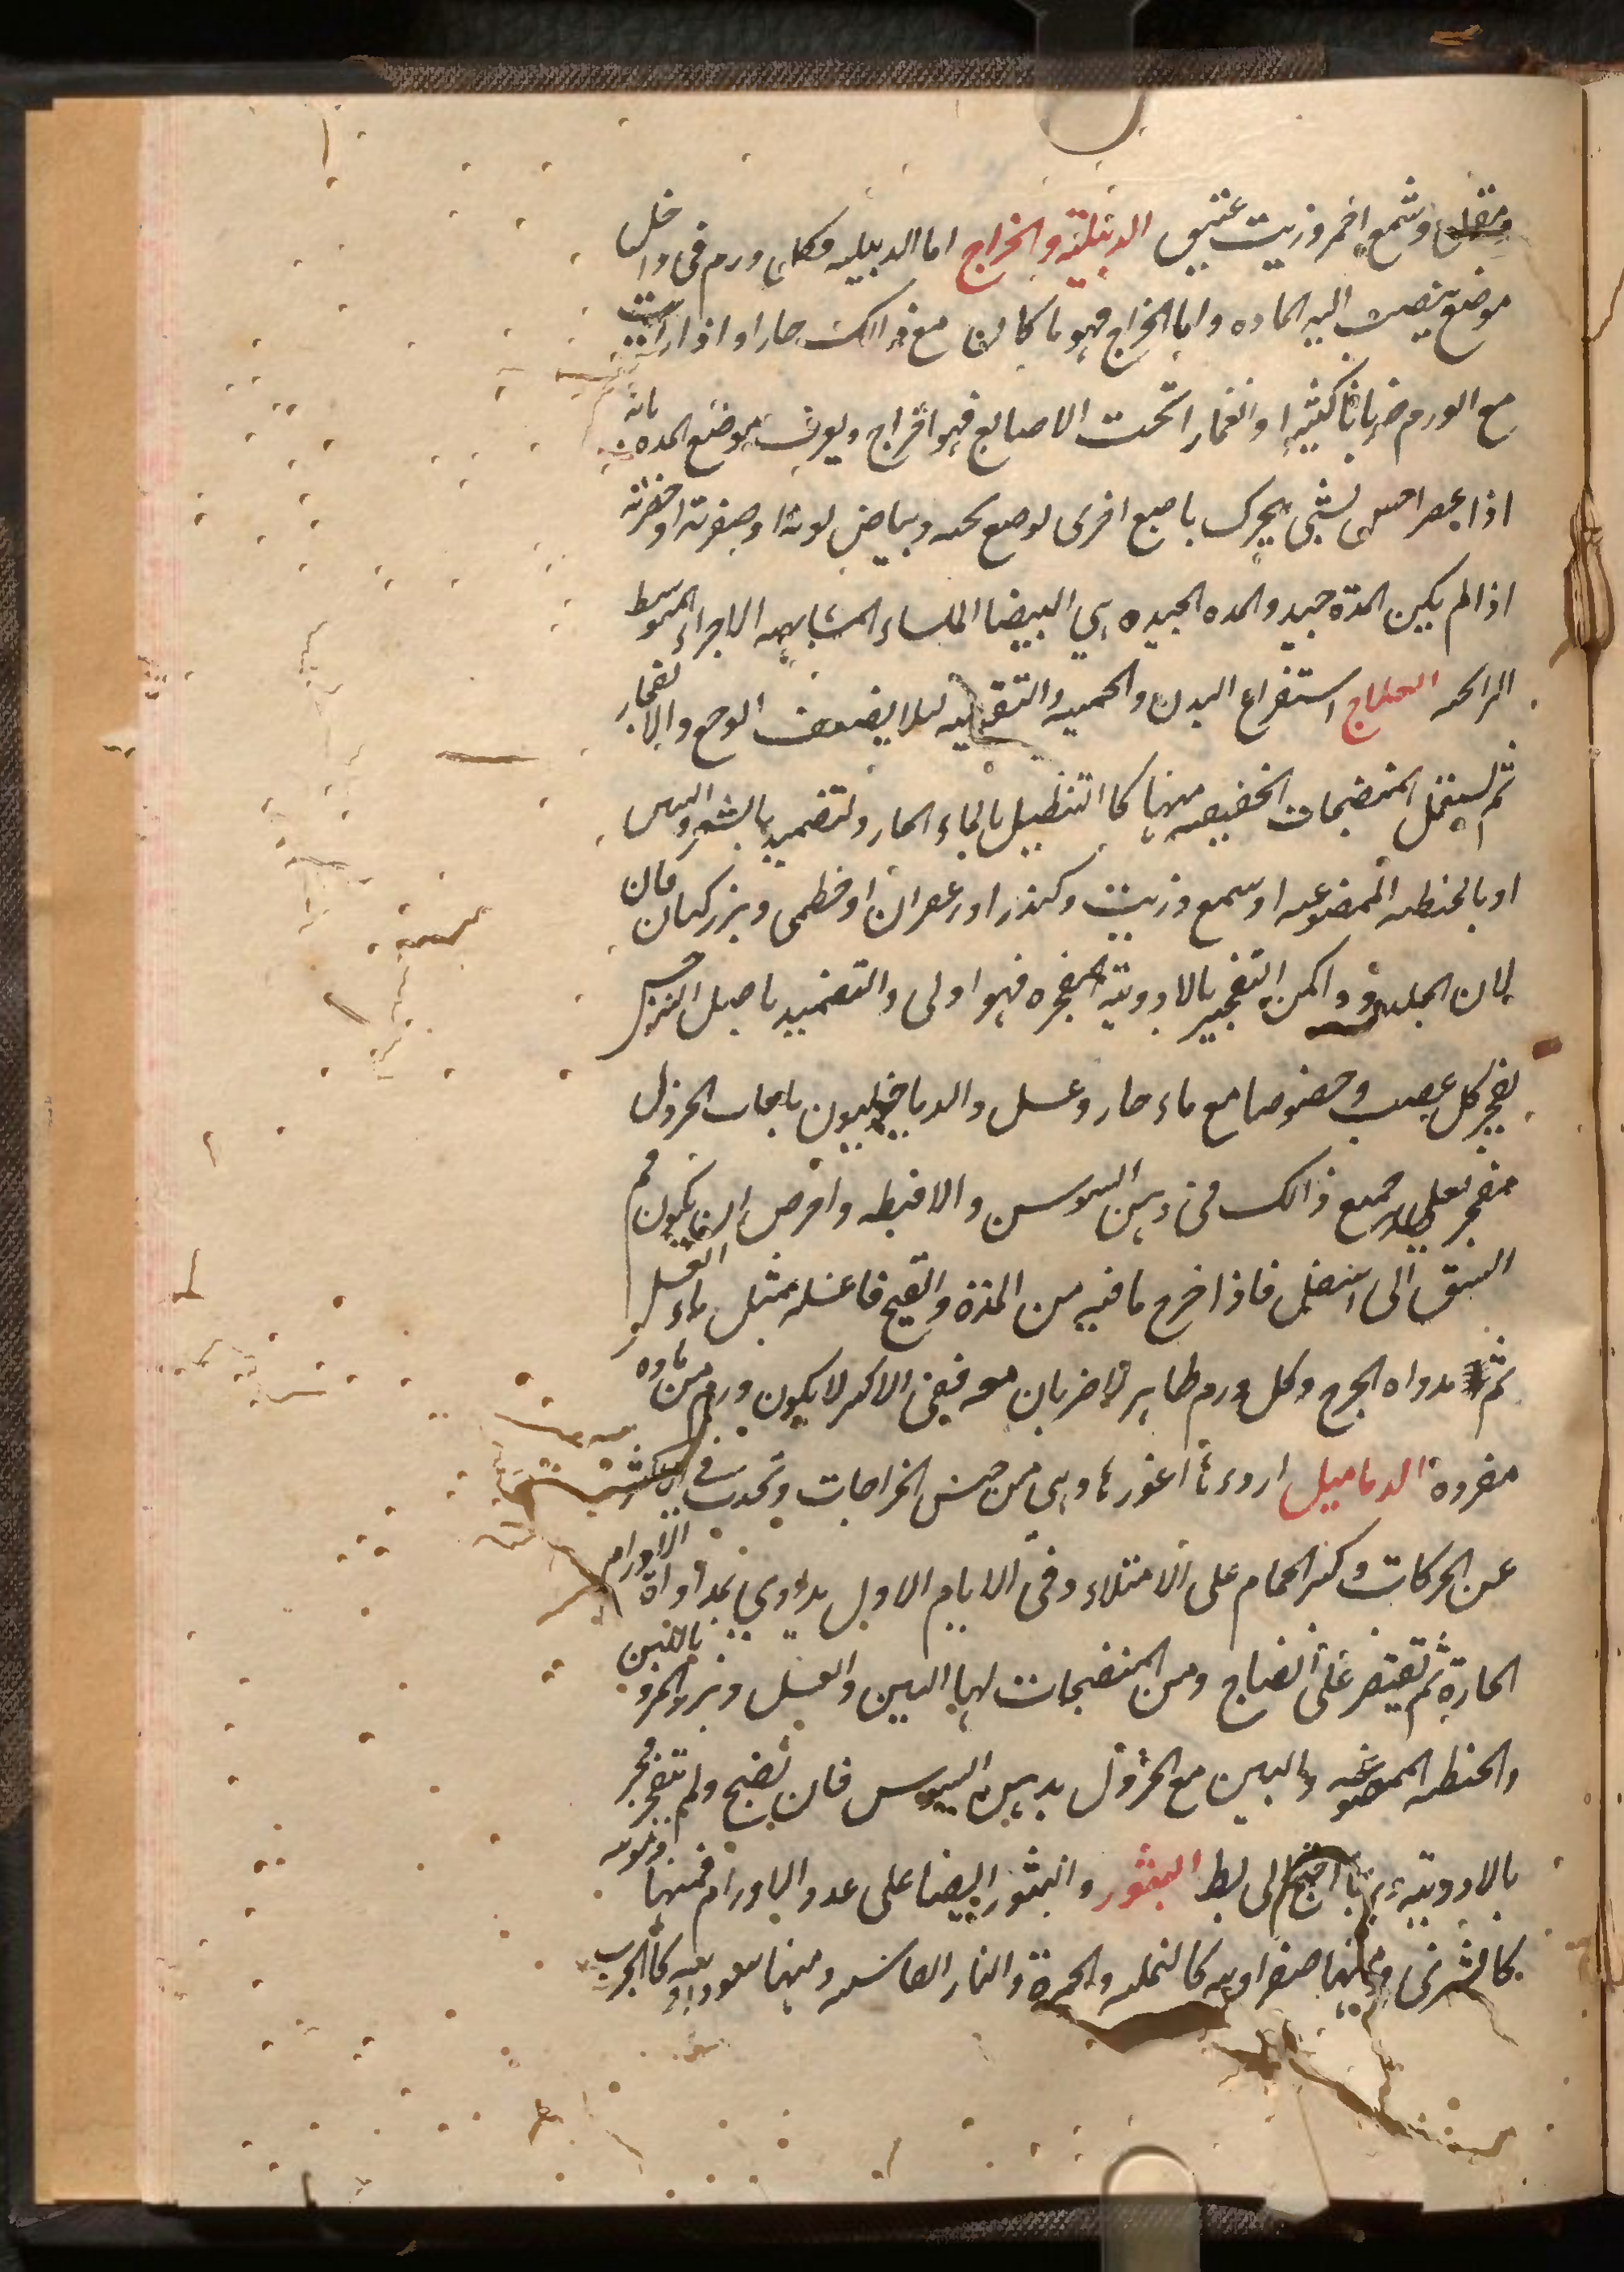 ومقل وشمع احمر وزيت عتيق الدبيلة والخراج اما الدبيله فكل ورم فى داخل
موضع ينصب اليه الماده واما الخراج فهو ما كان مع ذالك حارا واذا رايت
مع الورم ضربانا كثيرا وانغمارا تحت الاصابع فهو خراج ويعرف موضع المده بانه
اذا عصر احس بشى يحرك باصبع اخرى توضع تحته وبياض لونه او صفرته او خضرته
اذا لم يكن المدة جيد والمده الجيده هي البيضا الملساء المتشابهه الاجزاء المتوسط
الرائحه العلاج استفراغ البدن والحميه والتقويه لئلا يضعف الوجع والانفجار
ثم يستعمل المنضجات الخفيفه منها كا التنطيل بالماء الحار والتضميد بالشعير والتين
او بالحنطه الممضوغه او شمع وزيت وكندر او زعفران او خطمى وبزر كتان فان
لان الجلد و امكن التفجير بالادوية المفجره فهو اولى والتضميد باصل النرجس
يفجر كل عصب وخصوصا مع ماء حار وعسل والدياخيليون بلعاب الخردل
مفجر يعلى جميع ذالك فى دهن السوسن والا فبطه واحرص ان يكون فم
الشق الى اسفل فاذا خرج ما فيه من المدة والقيح فاغسله بمثل ماء العسل
ثم مدواه الجرح وكل ورم ظاهر لا ضربان معه ففى الاكثر لا يكون ورم من ماده
مفرده الدماميل اردءها اغورها وهى من جنس الخراجات وتحدث فى الاكثر
عن الحركات وكثر الحمام على الامتلاء وفى الايام الاول يداوي بمداواة الاورام
الحارة ثم يقتصر على انضاج ومن المنضجات لها التين والعسل وبزر المرو باللبن
والحنطه الممضوغه والتين مع الخردل بدهن السوس فان نضج ولم تنفجر فجر
بالادويته وربما احتيج الى بط البثور والبثور ايضا على عدد الاورام فمنها دمويه
كالشرى ومنها صفراويه كالنمله والحمرة والنار الفارسيه ومنها سوداويه كا الجرب